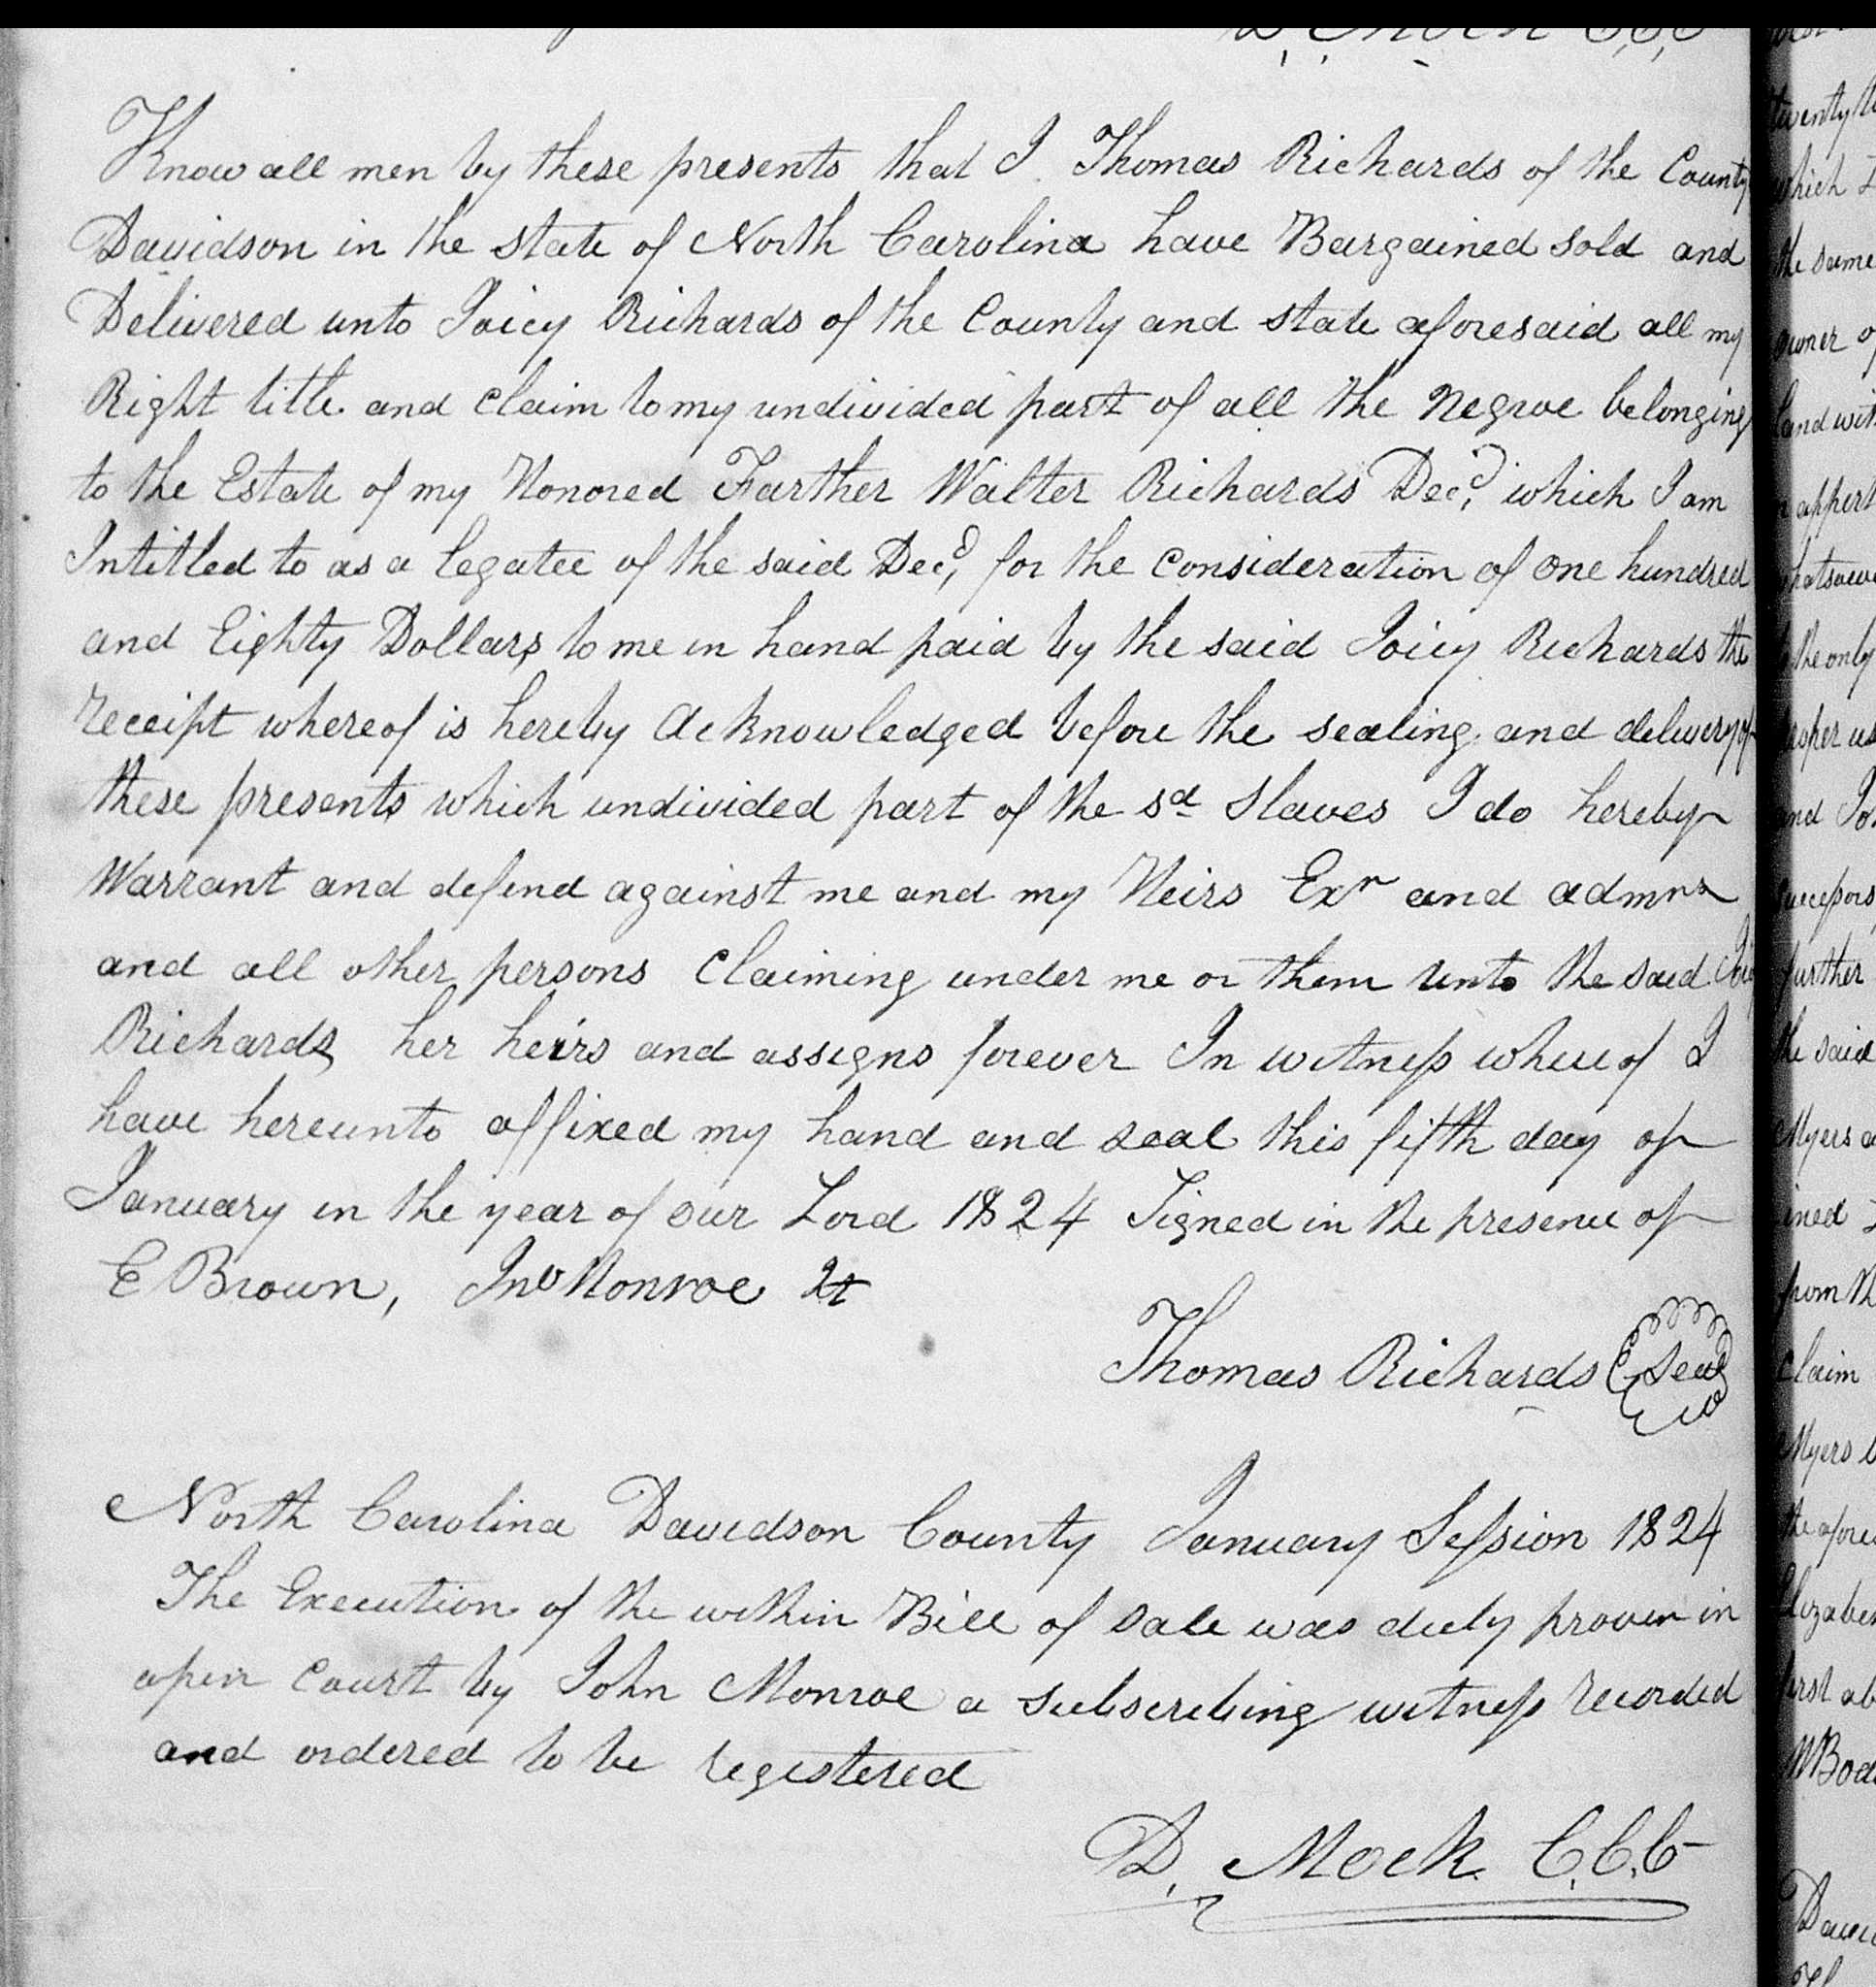 D, Mock C,C,C
Know all men by these presents that I Thomas Richards of the County
Davidson in the state of North Carolina have Bargained sold and
Delivered unto Joicy Richards of the County and state aforesaid all my
Right title and claim to my undivided part of all the Negroe belonging
to the Estate of my Honored Farther Walter Richards Decd, which I am
Intitled to as a legatee of the said Decd, for the consideration of one hundred
and Eighty Dollars to me in hand paid by the said Joicy Richards the
receipt whereof is hereby acknowledged before the sealing and delivery of
these presents which undivided part of the sd slaves I do hereby
Warrant and defend against me and my Heirs Exr and admrs
and all other persons claiming under me or them unto the said Joicy
Richards her heirs and assigns forever In witness whereof I
have hereunto affixed my hand and seal this fifth day of
January in the year of our Lord 1824 Signed in the presence of
E Brown, Jno Monroe
Thomas Richards Seal
North Carolina Davidson County January Session 1824
The Execution of the within Bill of sale was duely proven in
open court by John Monroe a subscribing witness recorded
and ordered to be registered
D, Mock C.C.C
twenty
which
the same
owner of
land with
the only
and
further
the said
Myers
from
claim
Myers
first